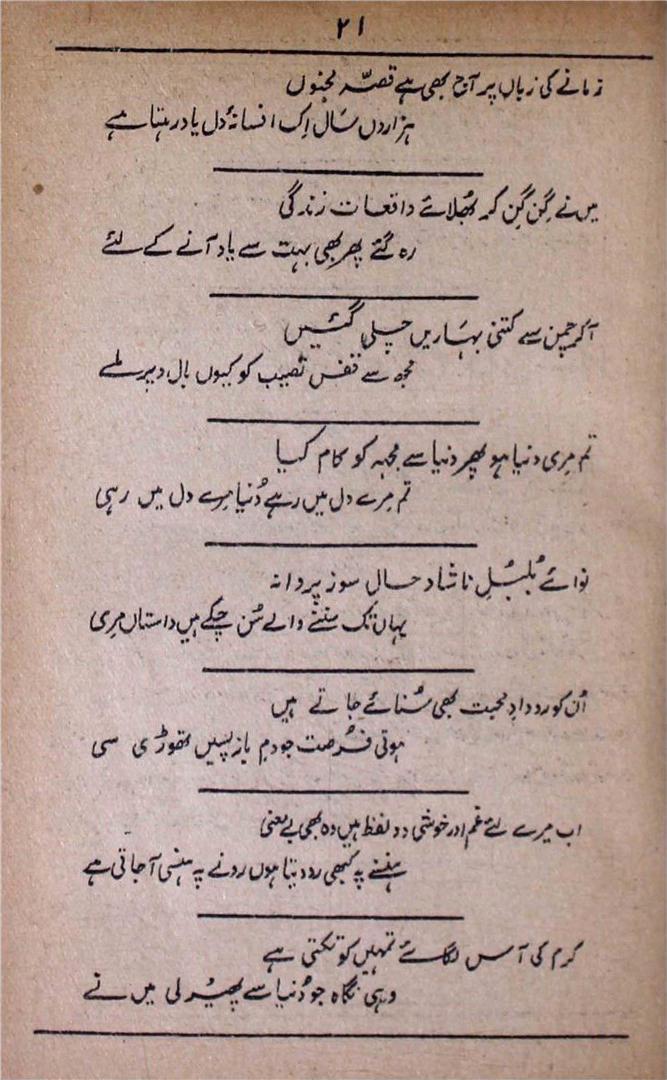 ۲۱
زمانے کی زباں پر آج بھی ہے قصّہ مجنوں
ہزاروں سَال اِک افسانۂ دل یاد رہتا ہے
میں نے گِن گِن کر بُھلائے واقعات زندگی
رہ گئے پھر بھی بہت سے یاد آنے کے لئے
آکر چمن سے کتنی بہَاریں چلی گئیں
مجھ سے قفس نصیب کو کیوں بال و پر ملے
تم مِری دنیا ہو پھر دنیا سے مجہہ کو کام کیا
تم مرے دل میں رہے دُنیا مرے دل میں رہی
نوائے بُلبُلِ ناشاد حال سوز پروانہ
یہاں تک سننے والے سُن چکے ہیں داستاں مری
اُن کو رودادِ محبت بھی سُنائے جاتے ہیں
ہوتی فُرصت جو دمِ باز پسیں تھوڑی سی
اب میرے لئے غم اور خوشی دو لفظ ہیں وہ بھی بے معنی
ہنسنے پہ کبھی رو دیتا ہوں رونے پہ ہنسی آجاتی ہے
کرم کی آس لگائے تمہیں کو تکتی ہے
وہی نگاہ جو دُنیا سے پھیر لی میں نے